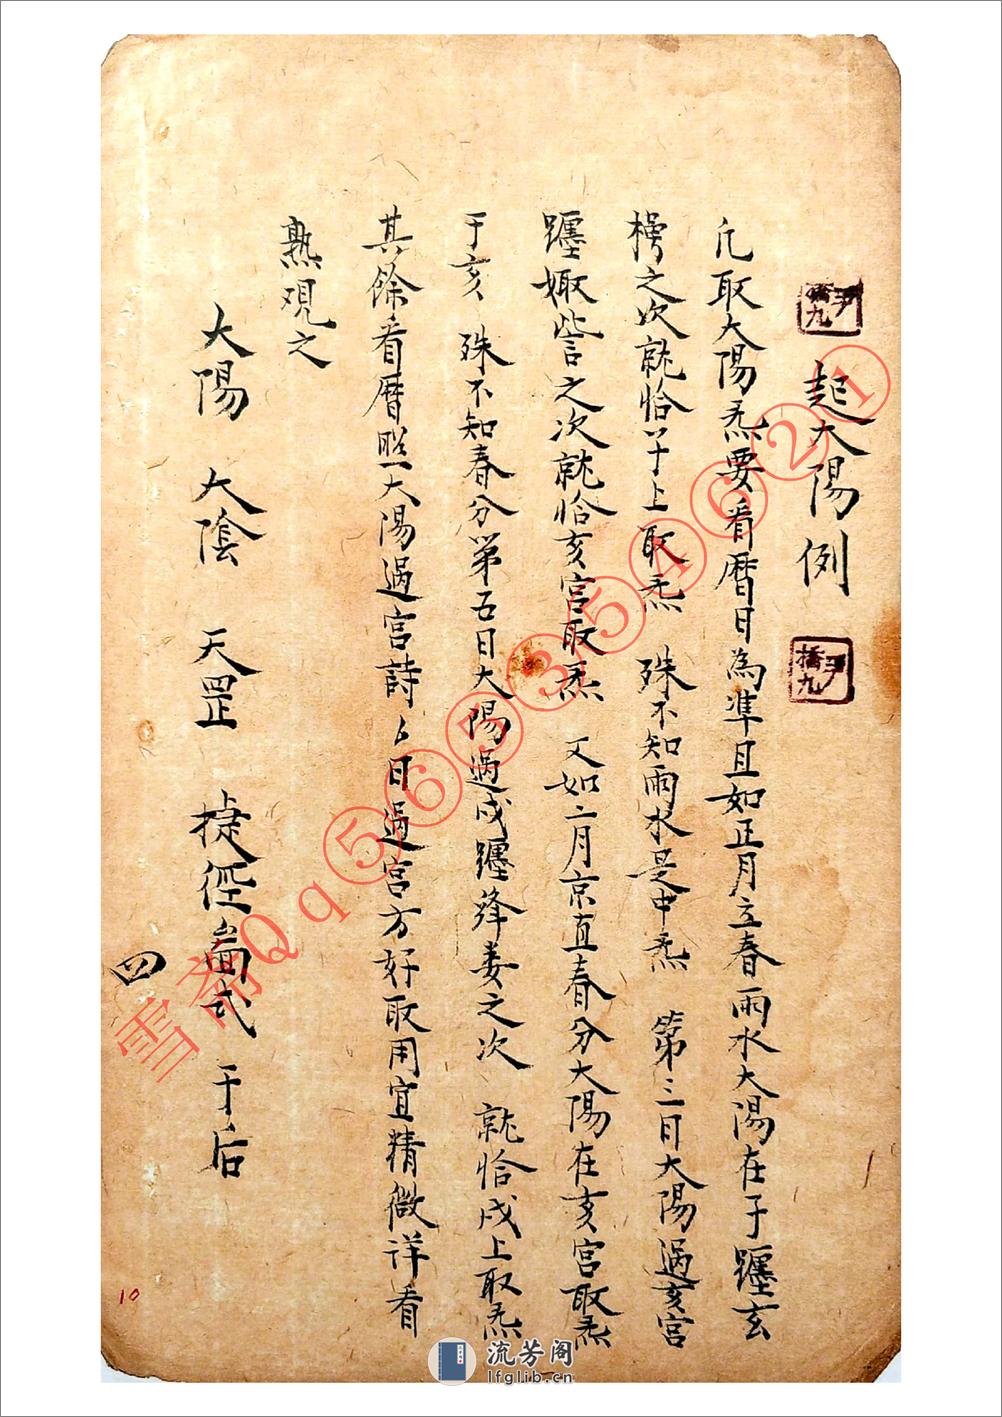 起太陽例
凢取太陽炁要看曆日為準且如正月立春雨水太陽在子躔玄
枵之次就恰子上取炁 殊不知雨水是中炁 第三日太陽過亥宮
躔娵訾之次就恰亥宮取炁 又如二月京直春分太陽在亥宮取炁
于亥 殊不知春分第五日太陽過戌躔降婁之次 就恰戌上取炁
其餘看曆照太陽過宮詩 日過宮方好取用宜精微詳看
熟观之
太陽 太陰 天罡 捷徑啚式 于后
四
10
雪斋Qq⑤⑥⑤③⑤④⑥②①
流芳阁
lfglib.cn